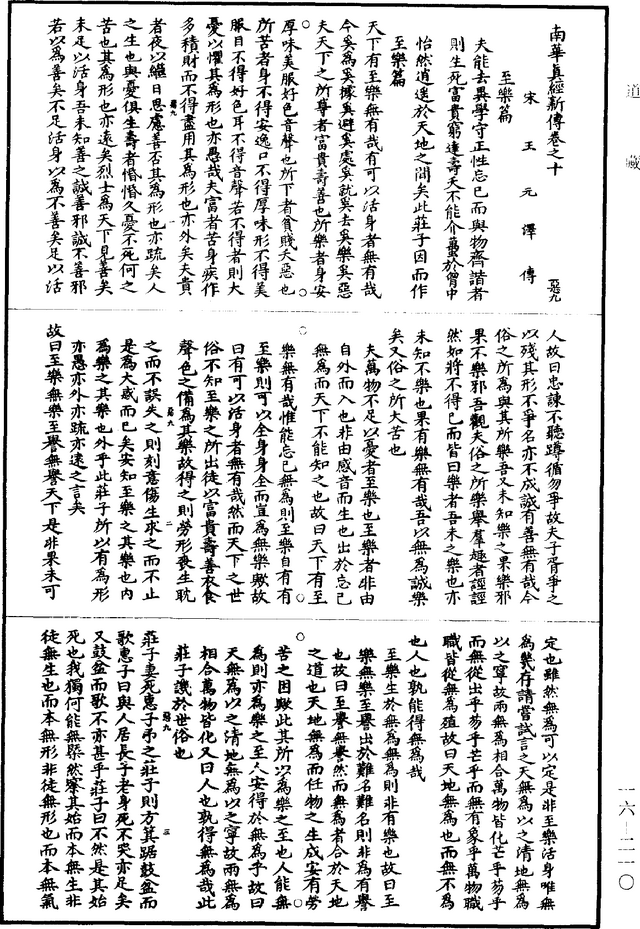 道藏
南華真經新傳卷之十
惡九
宋王元澤傳
至樂篇
夫能去異學守正性忘已而與物齊諧者
則生死富貴窮達壽夭不能介蠆於胷中
怡然逍遥於天地之間矣此莊子因而作
至樂篇
天下有至樂無有哉有可以活身者無有哉
今奚為奚據奚避奚處奚就奚去奚樂奚惡
夫天下之所尊者富貴壽善也所樂者身安
厚味美服好色音聲也所下者貧賤夭惡也
所苦者身不得安逸口不得厚味形不得美
服目不得好色耳不得音聲若不得者則大
憂以懼其為形也亦愚哉夫富者苦身疾作
多積財而不得盡用其為形也亦外矣夫貴
惡九
一
者夜以繼日思慮善否其為形也亦疏矣人
之生也與憂俱生壽者惛惛久憂不死何之
苦也其為形也亦遠矣烈士為天下見善矣
未足以活身吾未知善之誠善邪誠不善邪
若以為善矣不足活身以為不善矣足以活
人故曰忠諫不聽蹲循勿爭故夫子胥爭之
以殘其形不爭名亦不成誠有善無有哉今
俗之所為與其所樂吾又未知樂之果樂邪
果不樂邪吾觀夫俗之所樂舉羣趣者誙誙
然如將不得已而皆曰樂者吾未之樂也亦
未知不樂也果有樂無有哉吾以無為誠樂
矣又俗之所大苦也
夫萬物不足以憂者至樂也至樂者非由
自外而入也非由感音而生也出於忘已
無為而天下不能知之也故曰天下有至
樂無有哉惟能忘已無為則至樂自有有
至樂則可以全身身全而豈為無樂歟故
曰有可以活身者無有哉然而天下之世
俗不知至樂之所出徒以富貴壽善衣食
聲色之備為其樂故得之則勞形喪生耽
惡九
二
之而不誤失之則刻意傷生求之而不止
是為大惑而已矣安知至樂之其樂也内
為樂之其樂也外乎此莊子所以有為形
亦愚亦外亦疏亦遠之言矣
故曰至樂無樂至譽無譽天下是非果未可
定也雖然無為可以定是非至樂活身唯無
為幾存請嘗試言之天無為以之清地無為
以之寧故兩無為相合萬物皆化芒乎芴乎
而無從出乎芴乎芒乎而無有象乎萬物職
職皆從無為殖故曰天地無為也而無不為
也人也孰能得無為哉
至樂生於無為無為則非有樂也故曰至
樂無樂至譽出於難名難名則非為有譽
也故曰至譽無譽然而無為者合於天地
之道也天地無為而任物之生成安有勞
苦之困歟此其所以為樂之至也人能無
為則亦為樂之至人安得於無為乎故曰
天無為以之清地無為以之寧故兩無為
相合萬物皆化又曰人也孰得無為哉此
莊子譏於世俗也
惡九
三
莊子妻死惠子弔之莊子則方箕踞鼓盆而
歌惠子曰與人居長子老身死不哭亦足矣
又鼓盆而歌不亦甚乎莊子曰不然是其始
死也我獨何能無槩然察其始而本無生非
徒無生也而本無形非徒無形也而本無氣
一六—二一〇